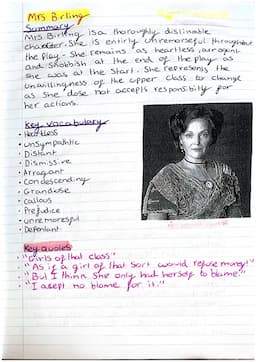 Mrs Birling
Summary
Mrs Birling is a thoroughly dislinable
character. She is entirly unremorseful throughout
the play. She remains as heartless, arrogant
and snobbish at the end of the play as
she was at the start. She represents the
unwillingness of the upper class to change
as she dose not accepts responsibilty for
her actions.
Key vocabulary
• Heartless
• unsympathetic
• Distant
• Dismissive
• Arragant
• Condescending
• Grandiose
• Callous
• Prejudice
• unremoresful
• Defendant
Key quotes
• "Girls of that class"
• "As if a girl of that sort would refuse money!"
• "But I think she only had herself to blame."
• "I acept no blame for it."